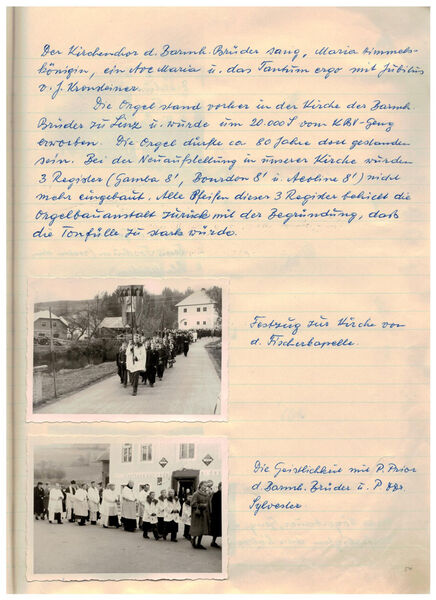 Der Kirchenchor d. Barmh. Brüder sang „Maria Himmels-
königin, ein Ave Maria u. das Tantum ergo mit Jubilus
v. J. Kronsteiner.
Die Orgel stand vorher in der Kirche der Barmh.
Brüder zu Linz u. wurde um 20.000 S vom KBV-Geng
erworben. Die Orgel dürfte ca 80 Jahre dort gestanden
sein. Bei der Neuaufstellung in unserer Kirche wurden
3 Register (Gamba 8', Bourdon 8' u. Aeoline 8') nicht
mehr eingebaut. Alle Pfeifen dieser 3 Register behielt die
Orgelbauanstalt zurück mit der Begründung, daß
die Tonfülle zu stark würde.
Festzug zur Kirche von
d. Fischerkapelle.
Die Geistlichkeit mit P. Prior
d. Barmh. Brüder u. P.
Sylvester